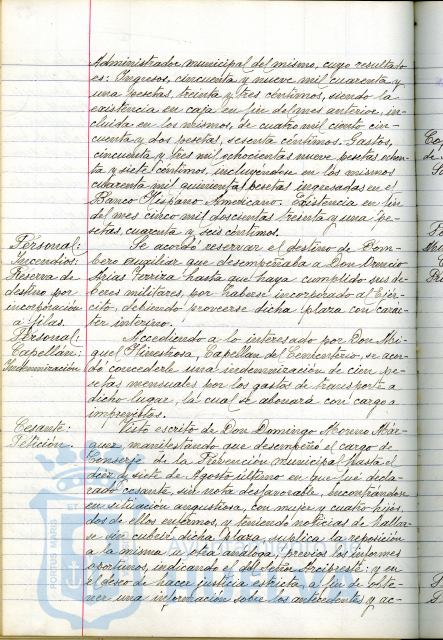 Administrador municipal del mismo, cuyo resultado
es: Ingresos, cincuenta y nueve mil cuarenta y
una pesetas treinta y tres céntimos, siendo la
existencia en caja en fin del mes anterior, in-
cluida en los mismos, de cuatro mil ciento cin-
cuenta y dos pesetas, sesenta céntimos. Gastos,
cincuenta y tres mil ochocientas nueve pesetas ochen-
ta y siete céntimos, incluyéndose en los mismos
cuarenta mil quinientas pesetas ingresadas en el
Banco Hispano Americano. Existencia en fin
del mes cinco mil doscientas treinta y una pe-
setas, cuarenta y seis céntimos.
Personal:
Incendios:
Reserva de
destino por
incorporación
a filas.
Se acordó reservar el destino de Bom-
bero auxiliar que desempeñaba a Don
Arias hasta que haya cumplido sus de-
beres militares, por haberse incorporado al Ejér-
cito, debiendo proveerse dicha plaza con carác-
ter interino.
Personal:
Capellán:
Indemnización
Accediendo a lo interesado por Don Mi-
guel Hinestrosa, Capellan del Cementerio, se acor-
dó concederle una indemnización de cien pe-
setas mensuales por los gastos de transporte a
dicho lugar, la cual se abonará con cargo a
imprevistos.
Cesante:
Petición.
Visto escrito de Don Domingo Moreno Már-
quez manifestando que desempeñó el cargo de
Conserje de la Prevención municipal hasta el
diez y siete de Agosto último en que fué decla-
rado cesante, sin nota desfavorable, encontrándose
en situación angustiosa, con mujer y cuatro hijos,
dos de ellos enfermos, y teniendo noticias de hallar-
se sin cubrir dicha plaza, suplica la reposición
a la misma u otra análoga, previos los informes
oportunos, indicando el del Señor Arcipreste: y en
el deseo de hacer justicia estricta, a fin de obte-
ner una información sobre los antecedentes y ac-
PORTUS MARIS